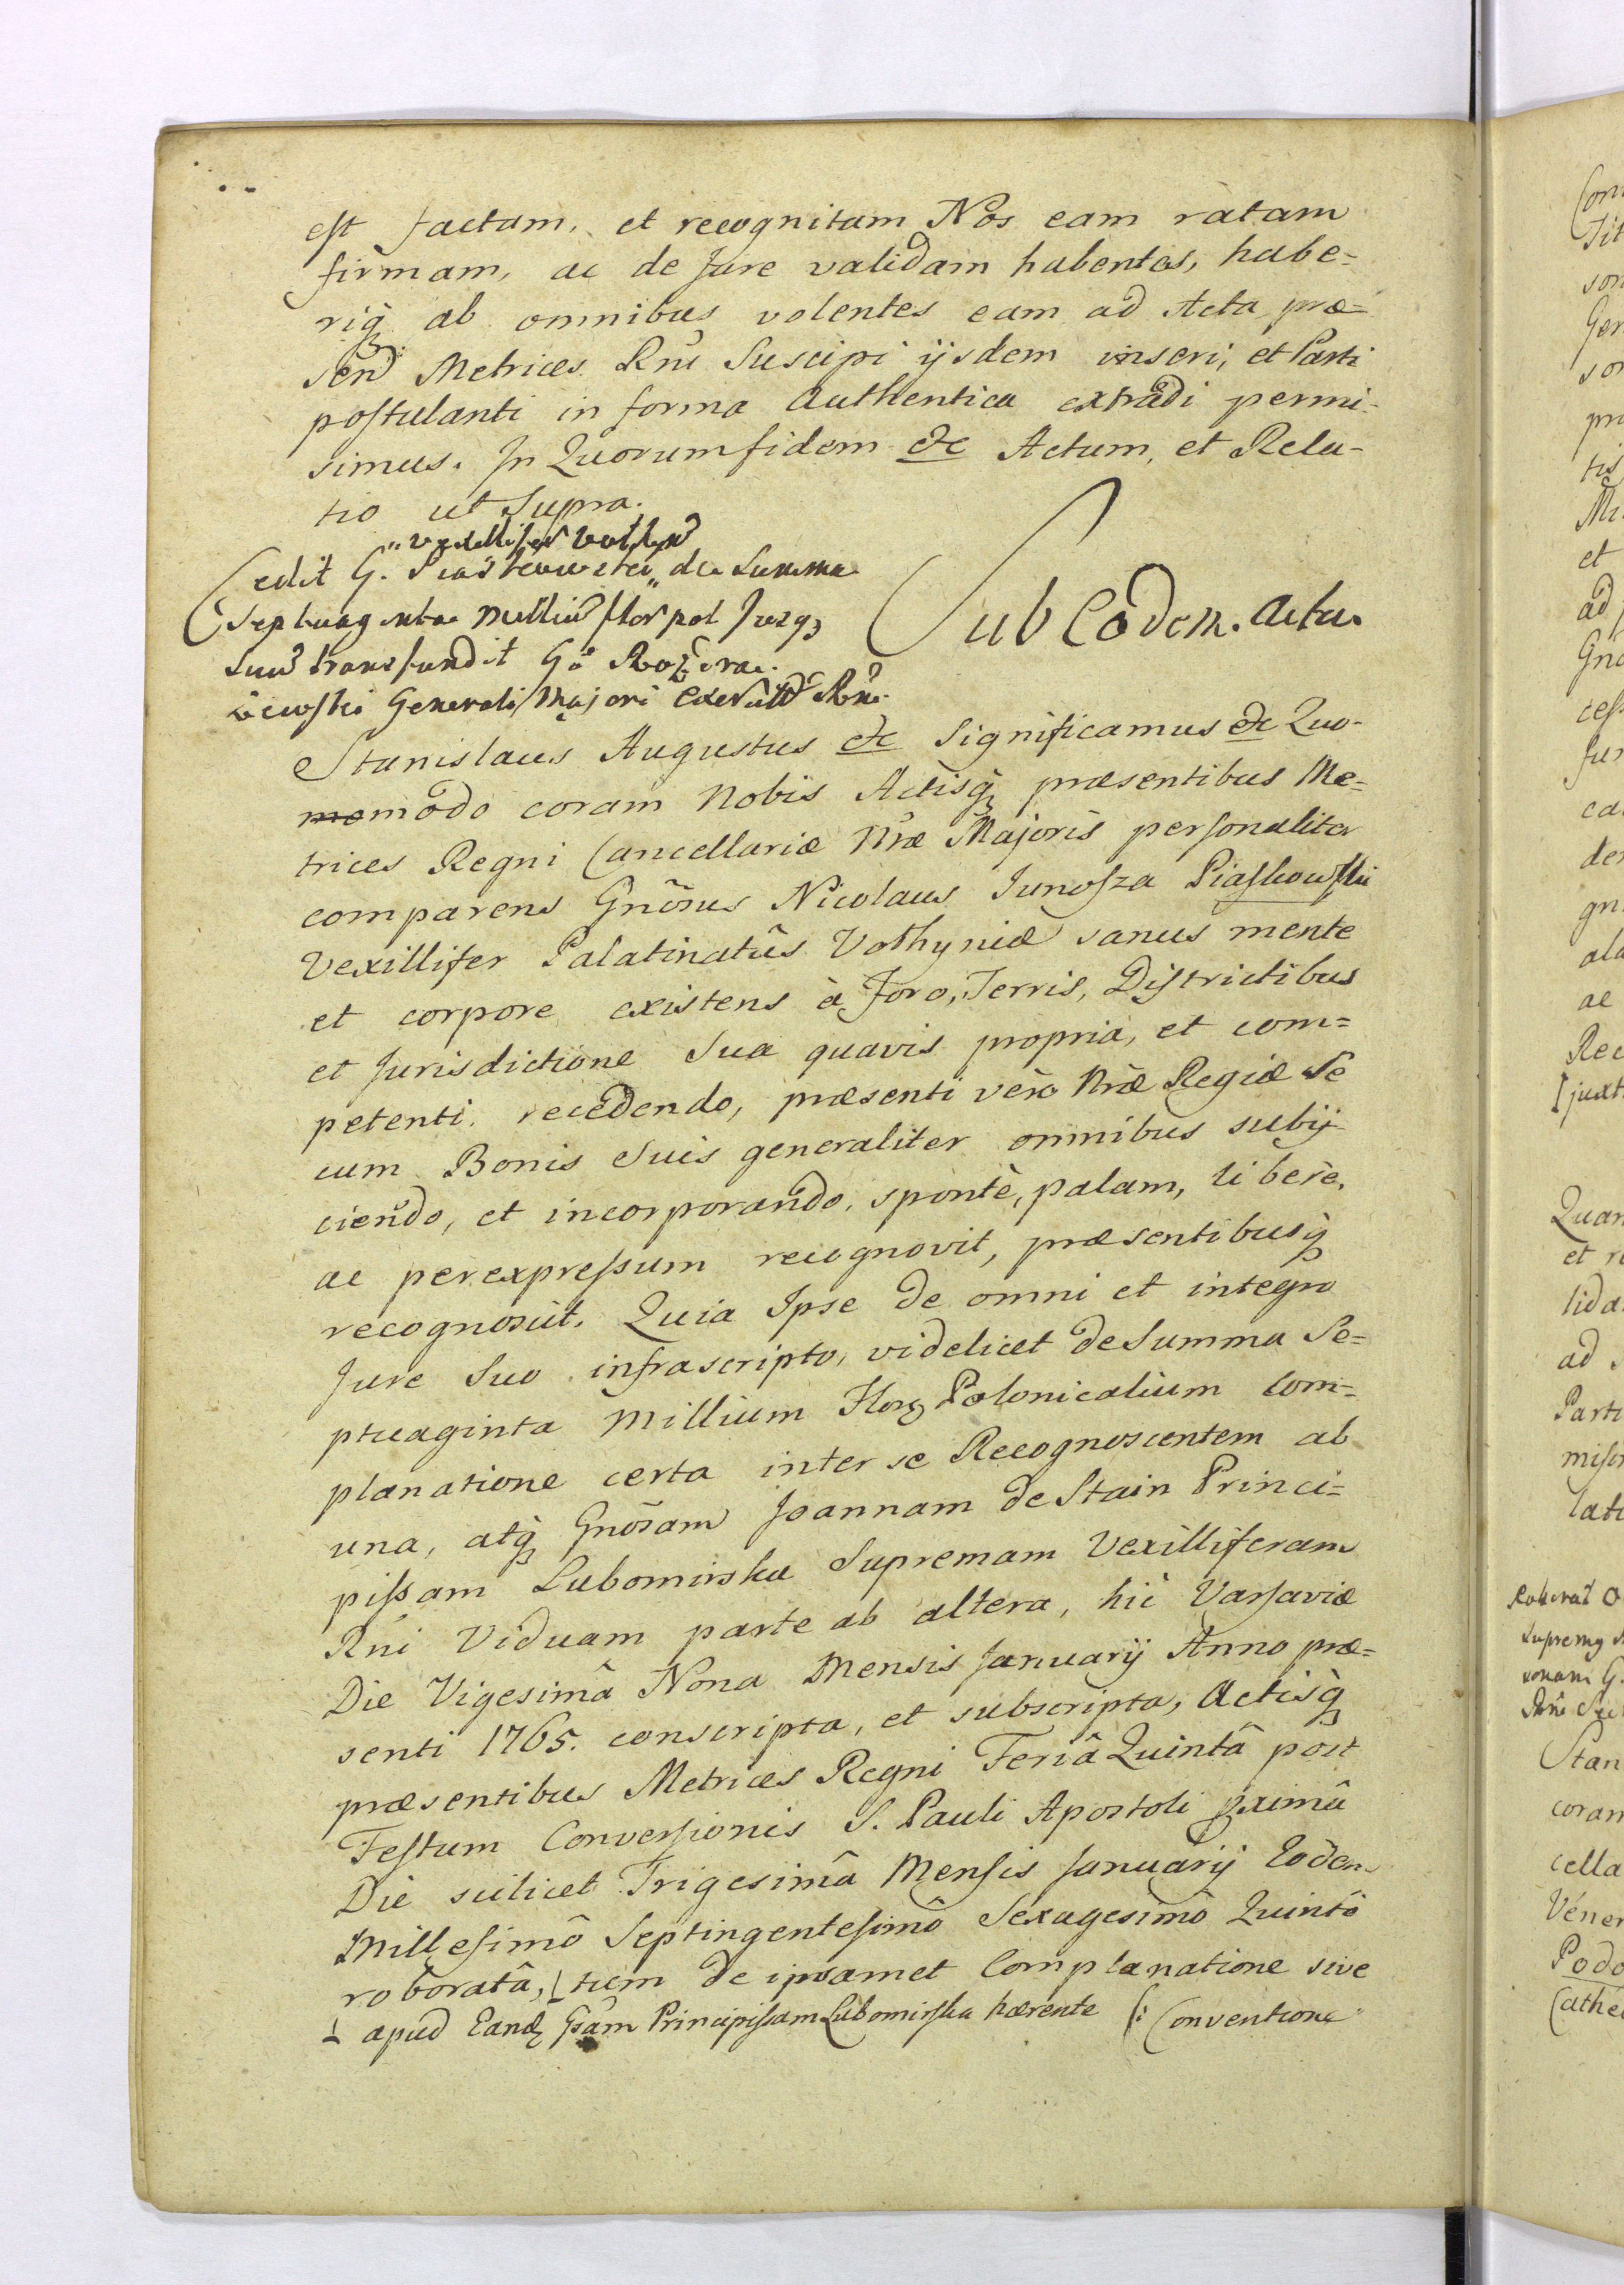 est factam, et recognitam Nos eam ratam
firmam, ac de Jure validam habentes, habe=
riq̀ ab omnibus volentes eam ad Acta præ=
send Metrices Rni Suscipi ijsdem inseri, et Parti
postulanti in forma Authentica extradi permi-
simus. In Quorum fidem etc Actum, et Rela-
tio ut Supra.
Sub Eodem. Actu.
„Vexillifer Volhyn
Cedit G. Piaskowski„ de Summa
Septuaginta Milliū flor pol Jusq3
suū transfundit Gō Rozwa-
Generali Majori Exercitū Rni
Stanislaus Augustus etc Significamus etc Quo-
momodo coram Nobis Actisq̀ præsentibus Me=
trices Regni Cancellariæ Nræ Majoris personaliter
comparens Gnōsus Nicolaus Junosza Piaskowski
Vexillifer Palatinatûs Volhyniæ sanus mente
et corpore existens à Foro, Terris, Districtibus
et Jurisdictione Sua quavis propria, et com=
petenti. recedendo, præsenti verò Nræ Regiæ Se
cum Bonis Suis generaliter omnibus subij-
ciendo, et incorporando, spontè, palam, liberè,
ac per expressum recognovit, præsentibusq̀
recognoscit. Quia Ipse de omni et integro
Jure Suo infrascripto, videlicet de Summa Se=
ptuaginta Millium Florȝ Polonicalium Com=
planatione certa inter se Recognoscentem ab
una, atq̀ Gnōsam Joannam de Stain Princi=
pissam Lubomirska Supremam Vexilliferam
Rni Viduam parte ab altera, hìc Varsaviæ
Die Vigesimâ Nona Mensis Januarij Anno præ=
senti 1765. conscripta, et subscripta, Actisq̀
præsentibus Metrices Regni Feriâ Quintâ post
Festum Conversionis S. Pauli Apostoli pximâ
Die scilicet Trigesimâ Mensis Januarij Eodem
Millesimô Septingentesimô Sexagesimô Quintô
roboratâ, ⊥ tum de ipsamet Complanatione sive
⊥ apud Eandȝ Gsam Principissam Lubomirska hærente (: Conventione